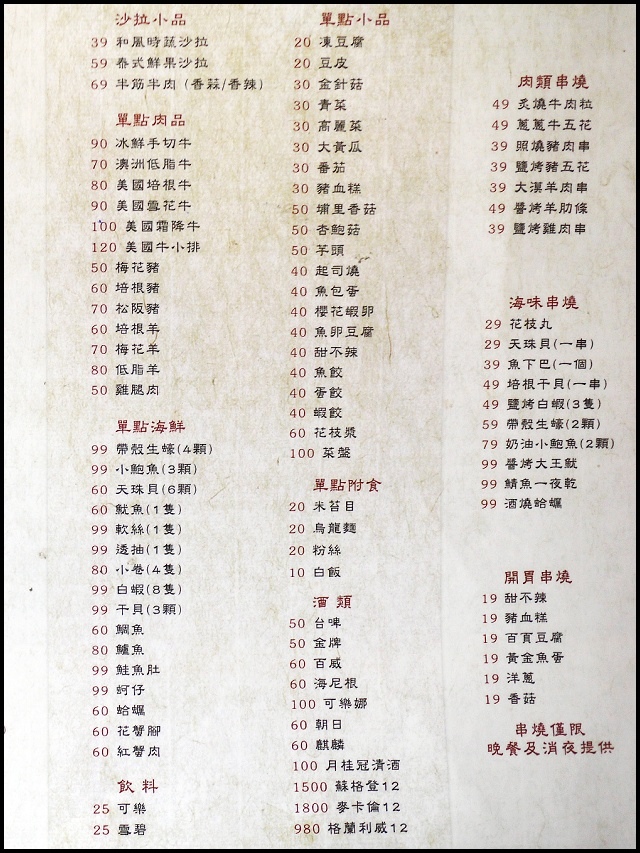 沙拉小品
39 和風時蔬沙拉
59 泰式鮮果沙拉
69 半筋半肉 (香蒜/香辣)
單點肉品
90 冰鮮手切牛
70 澳洲低脂牛
80 美國培根牛
90 美國雪花牛
100 美國霜降牛
120 美國牛小排
50 梅花豬
60 培根豬
70 松阪豬
60 培根羊
70 梅花羊
80 低脂羊
50 雞腿肉
單點海鮮
99 帶殼生蠔(4顆)
99 小鮑魚(3顆)
60 天珠貝(6顆)
60 魷魚(1隻)
99 軟絲(1隻)
99 透抽(1隻)
80 小卷(4隻)
99 白蝦(8隻)
99 干貝(3顆)
60 鯛魚
80 鱸魚
99 鮭魚肚
99 蚵仔
60 蛤蠣
60 花蟹腳
60 紅蟹肉
飲料
25 可樂
25 雪碧
單點小品
20 凍豆腐
20 豆皮
30 金針菇
30 青菜
30 高麗菜
30 大黃瓜
30 番茄
30 豬血糕
50 埔里香菇
50 杏鮑菇
50 芋頭
40 起司燒
40 魚包蛋
40 櫻花蝦卵
40 魚卵豆腐
40 甜不辣
40 魚餃
40 蛋餃
40 蝦餃
60 花枝漿
100 菜盤
單點附食
20 米苔目
20 烏龍麵
20 粉絲
10 白飯
酒類
50 台啤
50 金牌
60 百威
60 海尼根
100 可樂娜
60 朝日
60 麒麟
100 月桂冠清酒
1500 蘇格登12
1800 麥卡倫12
980 格蘭利威12
肉類串燒
49 炙燒牛肉粒
49 蔥蔥牛五花
39 照燒豬肉串
39 鹽烤豬五花
39 大漠羊肉串
49 醬烤羊肋條
39 鹽烤雞肉串
海味串燒
29 花枝丸
29 天珠貝(一串)
39 魚下巴(一個)
49 培根干貝(一串)
49 鹽烤白蝦(3隻)
59 帶殼生蠔(2顆)
79 奶油小鮑魚(2顆)
99 醬烤大王魷
99 鯖魚一夜乾
99 酒燒蛤蠣
開胃串燒
19 甜不辣
19 豬血糕
19 百頁豆腐
19 黃金魚蛋
19 洋蔥
19 香菇
串燒僅限
晚餐及消夜提供